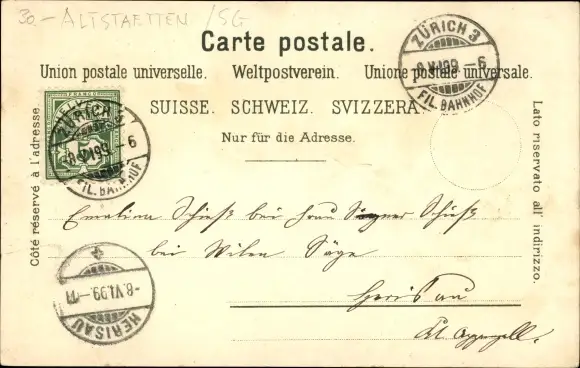 30.- ALTSTAETTEN /SG
Carte postale.
Union postale universelle. Weltpostverein. Unione postale universale.
SUISSE. SCHWEIZ. SVIZZERA.
Nur für die Adresse.
Côté réservé à l'adresse
Lato riservato all' indirizzo.
FRANCO
ZÜRICH 3
VI 99. - 6
FIL. BAHNHOF
ZÜRICH 3
VI 99. - 6
FIL. BAHNHOF
Emelina Schieß bei Frau Schieß
bei Wilen Säge
Herisau
Kt. Appenzell.
-8. VI. 99. - 11
HERISAU